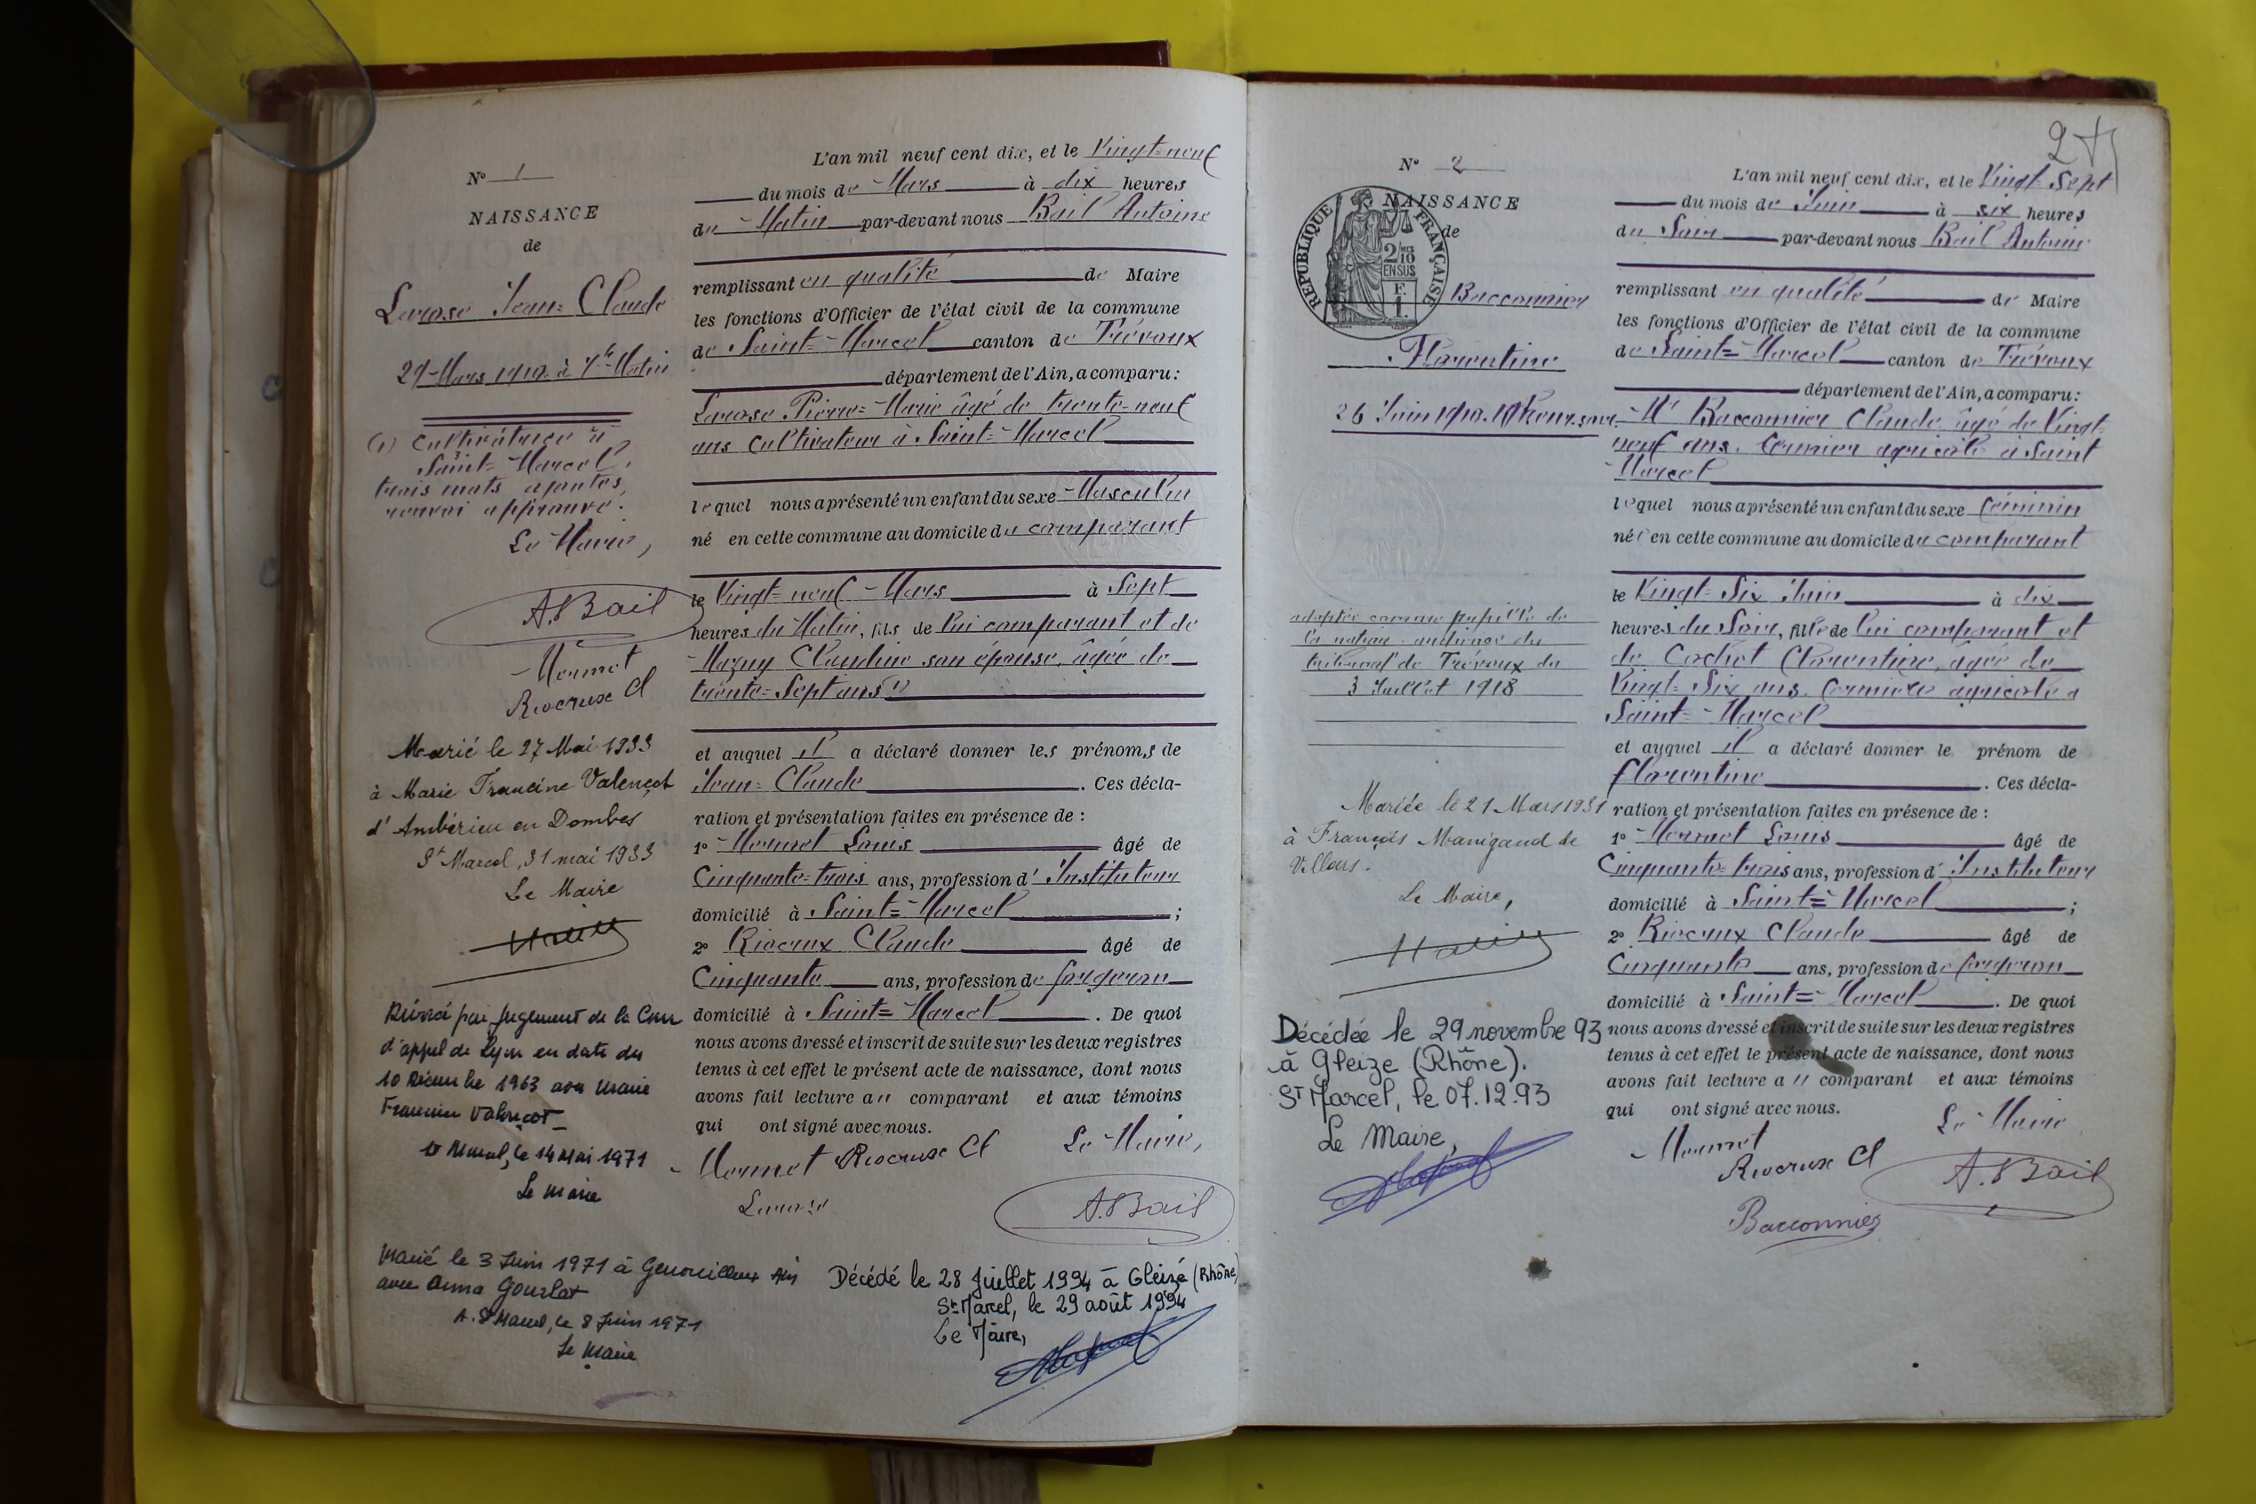 N° 1
NAISSANCE
de
Larose Jean=Claude
29 Mars 1910 à 7h Matin
(1) Cultivatrice à
Saint=Marcel,
trois mots ajoutés,
renvoi approuvé.
Le Maire,
A. Bail
Mermet
Rivcrux Cl
Marié le 27 Mai 1933
à Marie Francine Valençot
d'Ambérieu en Dombes
St Marcel, 31 mai 1933
Le Maire
Divorcé par Jugement de la Cour
d'appel de Lyon en date du
10 Décembre 1963 avec Marie
Francine Valençot
St Marcel, le 14 Mai 1971
Le Maire
Marié le 3 Juin 1971 à Genouilleux Ain
avec Anna Gourlat
A St Marcel, le 8 Juin 1971
Le Maire
L'an mil neuf cent dix, et le Vingt=neuf
du mois de Mars à dix heures
du Matin par-devant nous Bail Antoine
remplissant en qualité de Maire
les fonctions d'Officier de l'état civil de la commune
de Saint=Marcel canton de Trévoux
département de l'Ain, a comparu :
Larose Pierre=Marie âgé de trente=neuf
ans Cultivateur à Saint=Marcel
lequel nous a présenté un enfant du sexe Masculin
né en cette commune au domicile du comparant
le Vingt=neuf Mars à Sept
heures du Matin, fils de lui comparant et de
Mazuy Claudine son épouse, âgée de
trente=Sept ans (1)
et auquel il a déclaré donner les prénoms de
Jean=Claude. Ces décla-
ration et présentation faites en présence de :
1° Mermet Louis âgé de
Cinquante=trois ans, profession d'Instituteur
domicilié à Saint=Marcel ;
2° Rivcrux Claude âgé de
Cinquante ans, profession de forgeron
domicilié à Saint=Marcel. De quoi
nous avons dressé et inscrit de suite sur les deux registres
tenus à cet effet le présent acte de naissance, dont nous
avons fait lecture au comparant et aux témoins
qui ont signé avec nous.
Le Maire,
Mermet Rivcrux Cl
Larose
A. Bail
Décédé le 28 Juillet 1994 à Gleizé (Rhône)
St Marcel, le 29 août 1994
Le Maire,
2
N° 2
NAISSANCE
de
RÉPUBLIQUE FRANÇAISE
2/10
EN SUS
F.
1.
Bacconnier
Florentine
26 Juin 1910. 10 heur. soir
adoptée comme pupille de
la nation audience du
tribunal de Trévoux du
3 Juillet 1918
Mariée le 21 Mars 1931
à François Manigand de
Villars.
Le Maire,
Décédée le 29 novembre 93
à Gleize (Rhône).
St Marcel, le 07.12.93
Le Maire,
L'an mil neuf cent dix, et le Vingt=Sept
du mois de Juin à six heures
du Soir par-devant nous Bail Antoine
remplissant en qualité de Maire
les fonctions d'Officier de l'état civil de la commune
de Saint=Marcel canton de Trévoux
département de l'Ain, a comparu :
Mr Bacconnier Claude âgé de Vingt=
neuf ans. fermier agricole à Saint
Marcel
lequel nous a présenté un enfant du sexe féminin
née en cette commune au domicile du comparant
le Vingt=Six Juin à dix
heures du Soir, fille de lui comparant et
de Cachet Florentine, âgée de
Vingt=Six ans. fermière agricole à
Saint=Marcel
et auquel il a déclaré donner le prénom de
florentine. Ces décla-
ration et présentation faites en présence de :
1° Mermet Louis âgé de
Cinquante=trois ans, profession d'Instituteur
domicilié à Saint=Marcel ;
2° Rivcrux Claude âgé de
Cinquante ans, profession de forgeron
domicilié à Saint=Marcel. De quoi
nous avons dressé et inscrit de suite sur les deux registres
tenus à cet effet le présent acte de naissance, dont nous
avons fait lecture au comparant et aux témoins
qui ont signé avec nous.
Le Maire
Mermet
Rivcrux Cl
A. Bail
Bacconnier